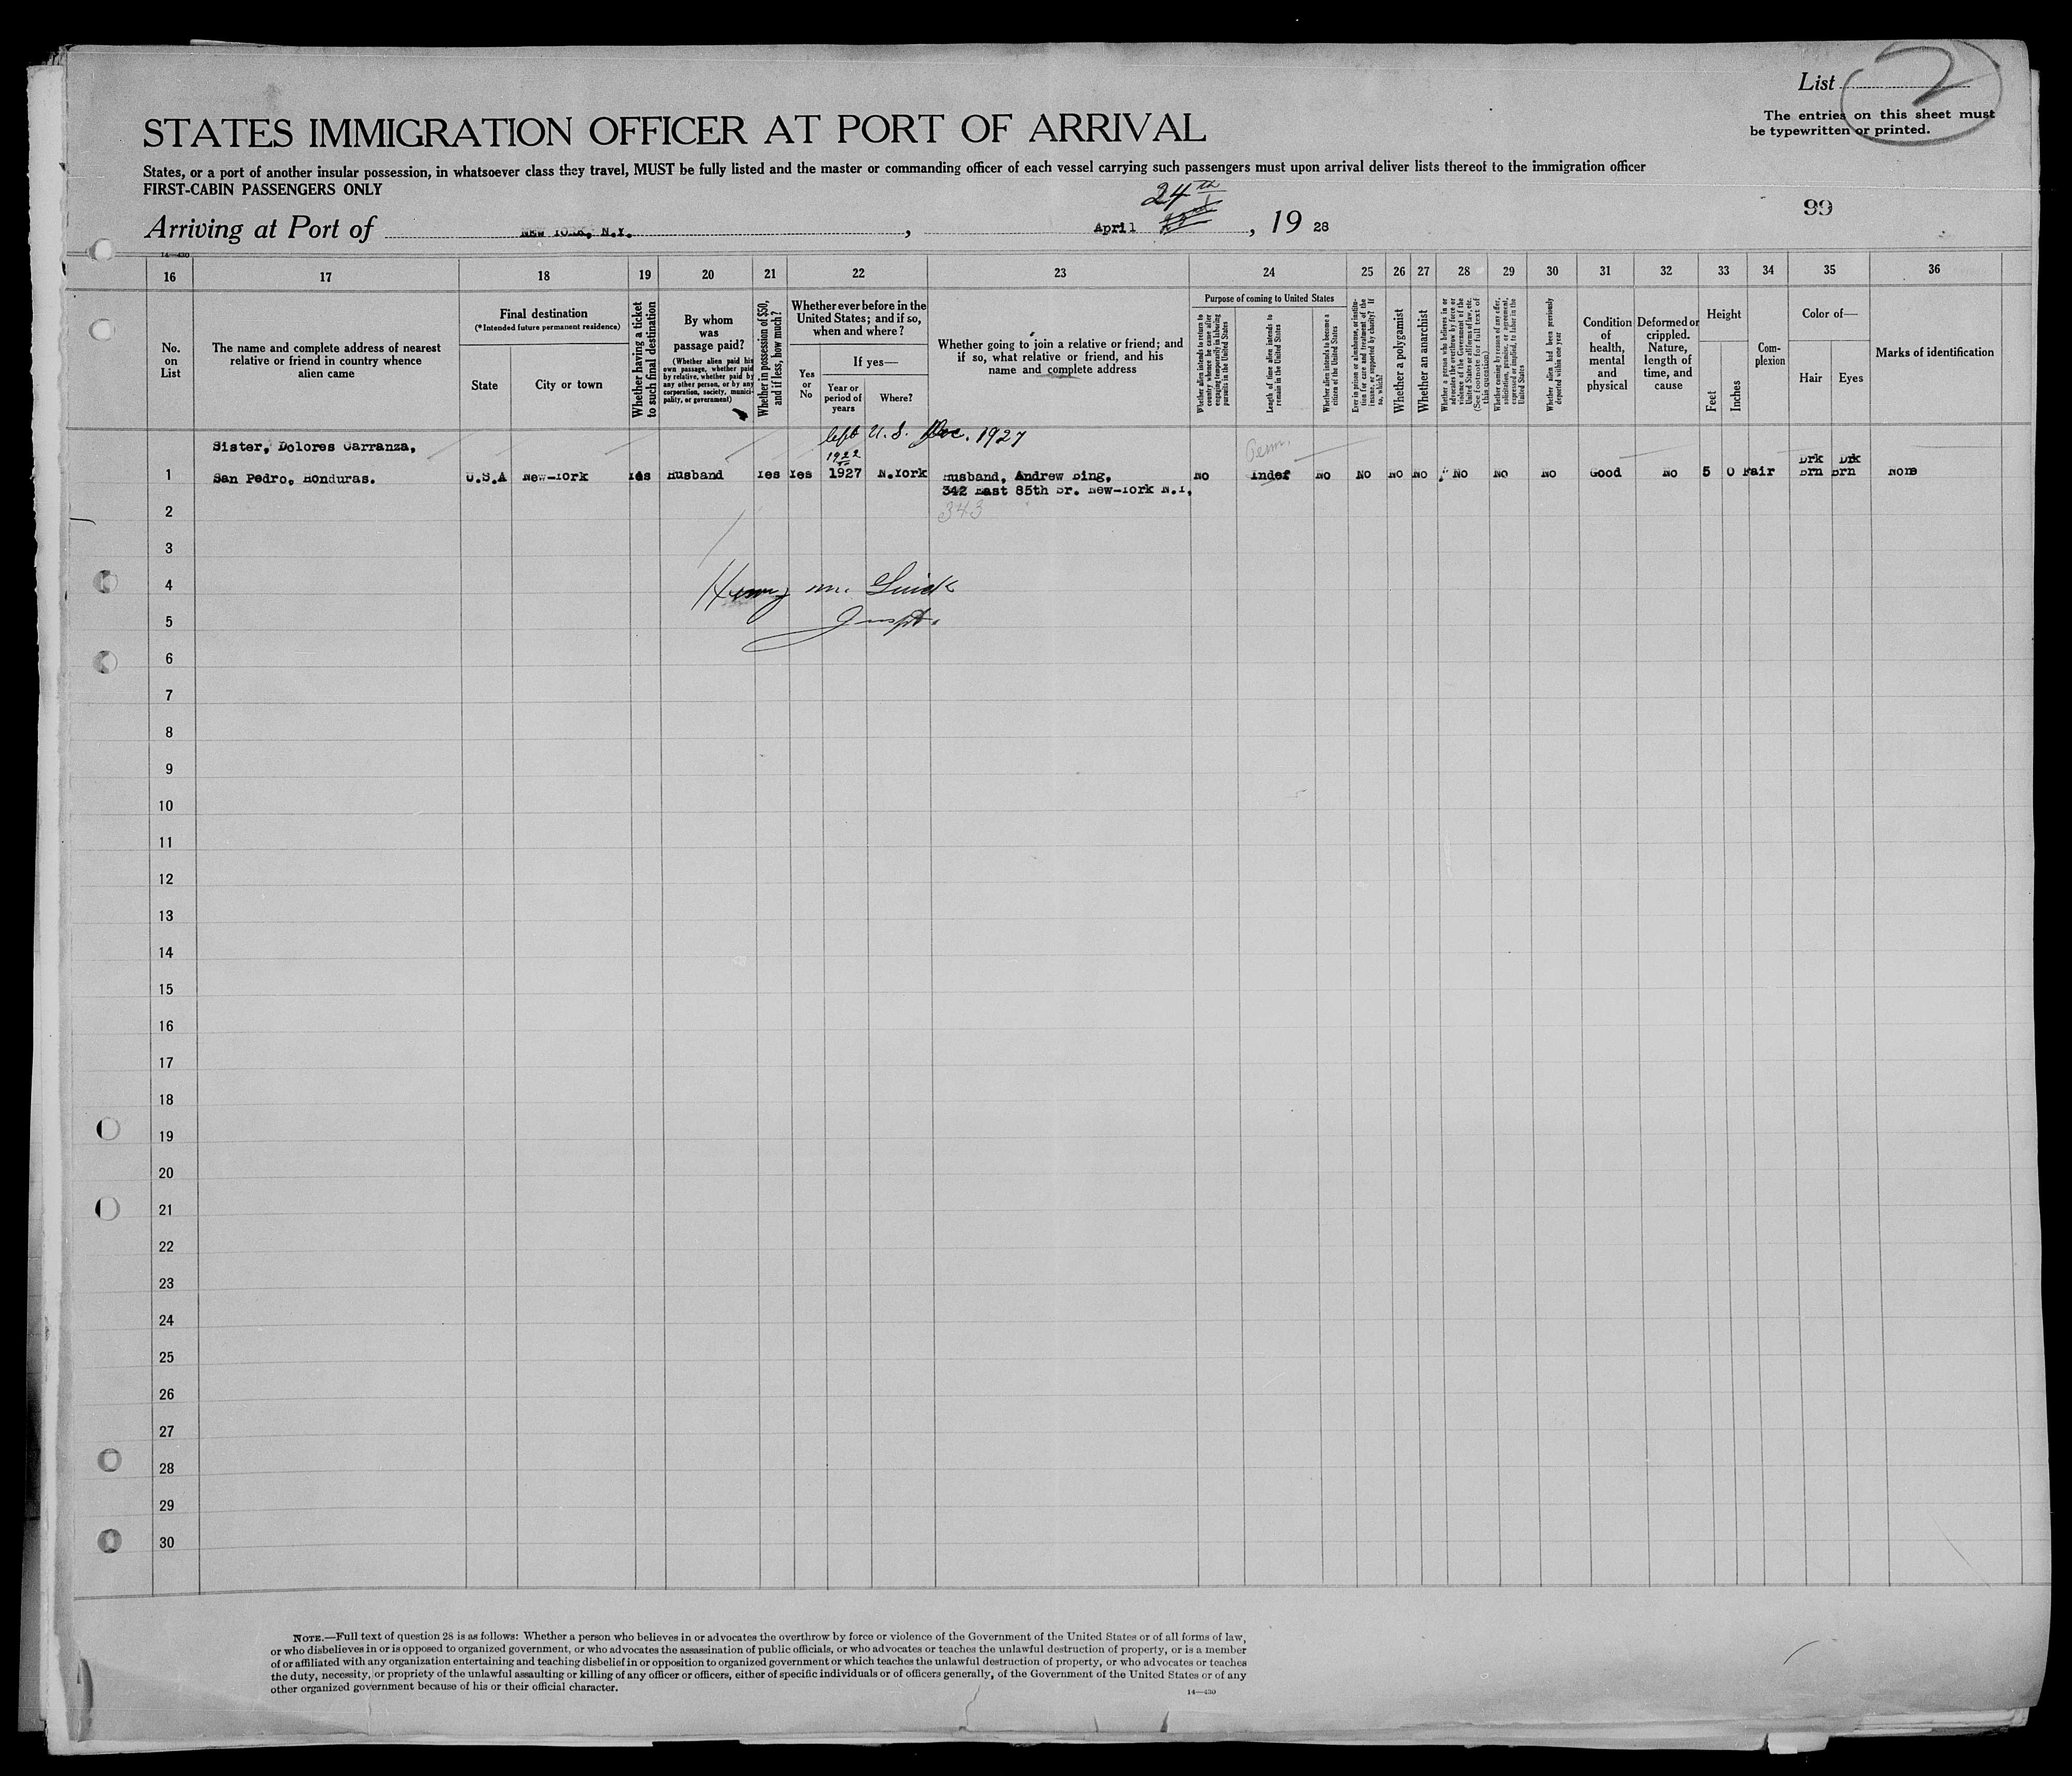 List 2
The entries on this sheet must
be typewritten or printed.
STATES IMMIGRATION OFFICER AT PORT OF ARRIVAL
States, or a port of another insular possession, in whatsoever class they travel, MUST be fully listed and the master or commanding officer of each vessel carrying such passengers must upon arrival deliver lists thereof to the immigration officer
FIRST-CABIN PASSENGERS ONLY
24th
99
Arriving at Port of New York, N.Y. , April , 19 28
14—430
16 17 18 19 20 21 22 23 24 25 26 27 28 29 30 31 32 33 34 35 36
No. on List
The name and complete address of nearest relative or friend in country whence alien came
Final destination
(*Intended future permanent residence)
State
City or town
Whether having a ticket to such final destination
By whom was passage paid?
(Whether alien paid his own passage, whether paid by relative, whether paid by any other person, or by any corporation, society, municipality, or government)
Whether in possession of $50, and if less, how much?
Whether ever before in the United States; and if so, when and where?
Yes or No
If yes—
Year or period of years
Where?
Whether going to join a relative or friend; and if so, what relative or friend, and his name and complete address
Purpose of coming to United States
Whether alien intends to return to country whence he came after engaging temporarily in laboring pursuits in the United States
Length of time alien intends to remain in the United States
Whether alien intends to become a citizen of the United States
Ever in prison or almshouse, or institution for care and treatment of the insane, or supported by charity? If so, which?
Whether a polygamist
Whether an anarchist
Whether a person who believes in or advocates the overthrow by force or violence of the Government of the United States or all forms of law, etc. (See footnote for full text of this question)
Whether coming by reason of any offer, solicitation, promise, or agreement, expressed or implied, to labor in the United States
Whether alien had been previously deported within one year
Condition of health, mental and physical
Deformed or crippled. Nature, length of time, and cause
Height
Feet
Inches
Complexion
Color of—
Hair
Eyes
Marks of identification
left U.S. Dec. 1927
Sister, Dolores Carranza, 1922 Perm. Drk Drk
1 San Pedro, Honduras. U.S.A New-York Yes Husband Yes Yes 1927 N.York Husband, Andrew Bing, No Indef No No No No No No No Good No 5 0 Fair Brn Brn None
342 East 85th Sr. New-York N.Y.
2 343
3
4 Henry M.
5 Inspt.
6
7
8
9
10
11
12
13
14
15
16
17
18
19
20
21
22
23
24
25
26
27
28
29
30
NOTE.—Full text of question 28 is as follows: Whether a person who believes in or advocates the overthrow by force or violence of the Government of the United States or of all forms of law,
or who disbelieves in or is opposed to organized government, or who advocates the assassination of public officials, or who advocates or teaches the unlawful destruction of property, or is a member
of or affiliated with any organization entertaining and teaching disbelief in or opposition to organized government or which teaches the unlawful destruction of property, or who advocates or teaches
the duty, necessity, or propriety of the unlawful assaulting or killing of any officer or officers, either of specific individuals or of officers generally, of the Government of the United States or of any
other organized government because of his or their official character.
14—430